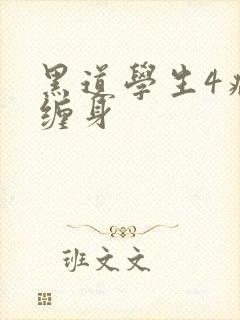 黑道學生4
缠身
班文文